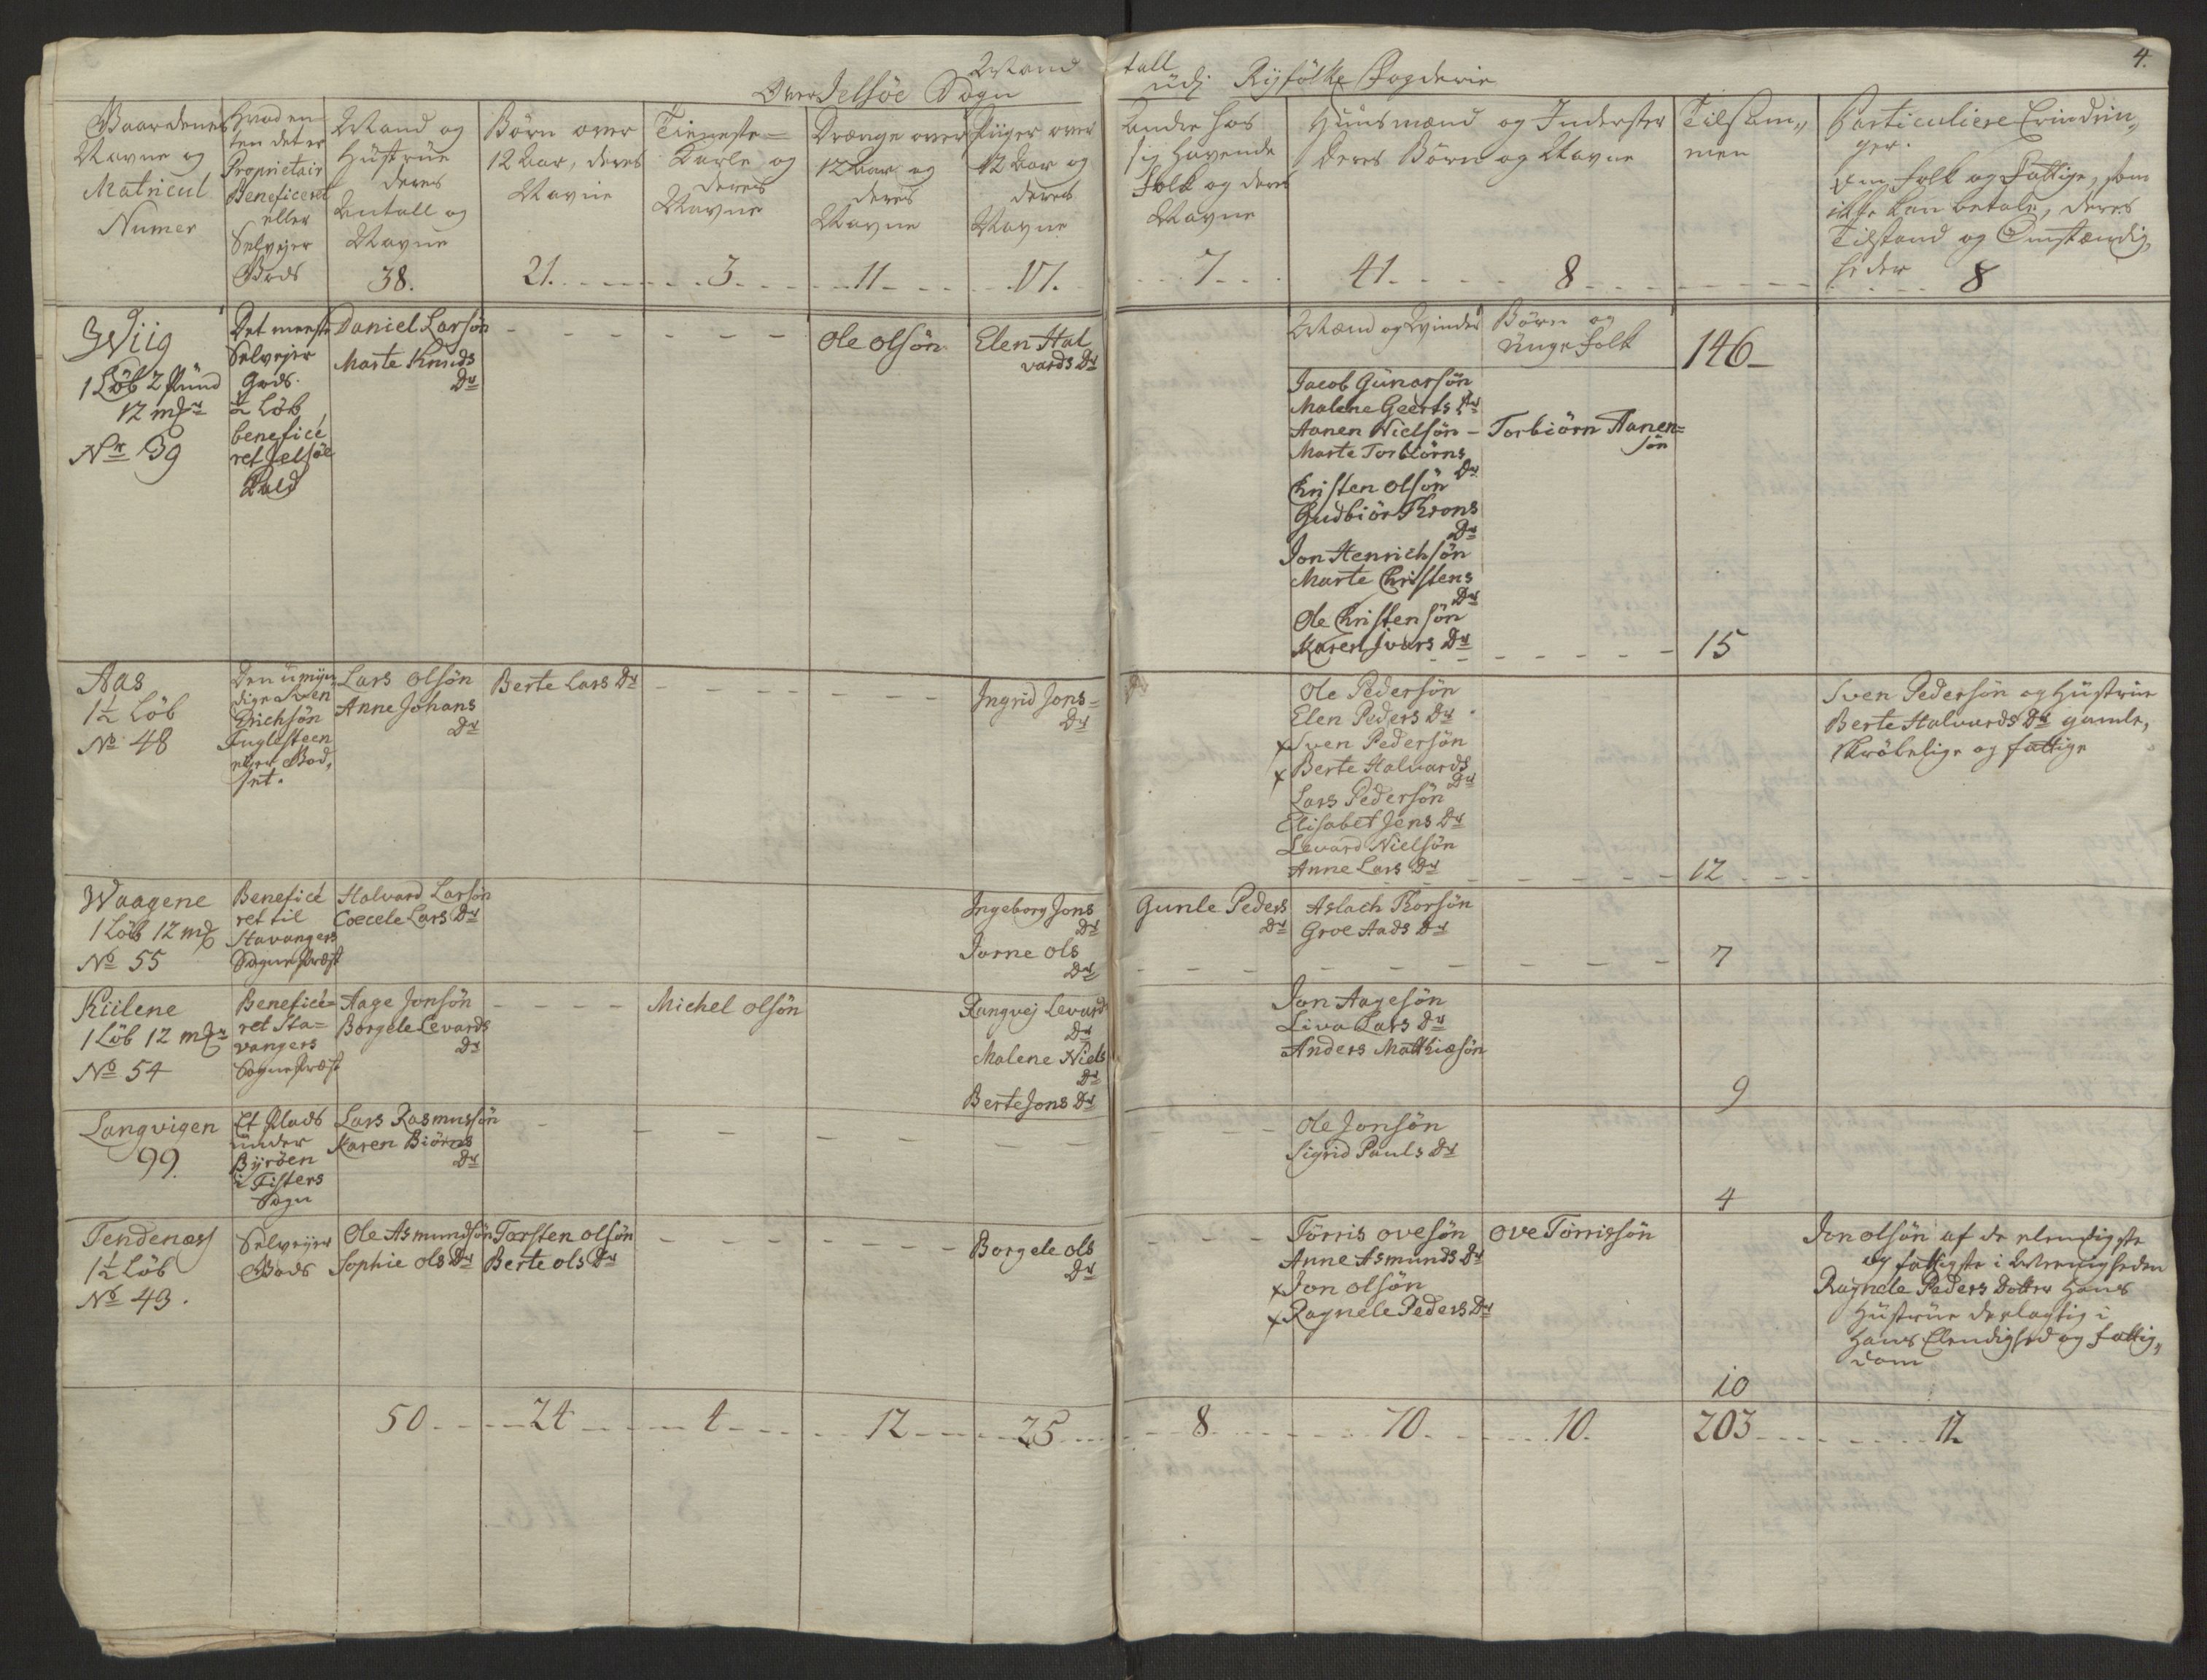 Mand tall
Over Jelsöe Sogn udj Ryfölke Fogderie
4.
Gaardenes
Navne og
Matricul
Numer
Hvad en
ten det er
Proprietair
Beneficeret
eller
Selvejer
Gods
Mand og
Hustrue
deres
Antall og
Navne
38.
Börn over
12 Aar, deres
Navne
21.
Tieneste=
Karle og
deres
Navne
3
Drænge over
12 Aar og
deres
Navne
11
Piiger over
12 Aar og
deres
Navne
17.
Andre hos
sig havende
Folk og deres
Navne
7
Huusmænd og Inderster
deres Börn og Navne
41
8
Tilsam„
men
Particuliere Erindrin„
ger.
Om Folk og Fattige, som
ikke kan betale, deres
Tilstand og Omstændig„
heder 8
Wiig
1 Löb 2 Pund
12 mkr
Nr 39
Det meeste
Selvejer
Gods.
½ Löb
beneficé
ret Jelsöe
Kald
Daniel Larsön
Marte Knuds
Dr
Ole Olsön
Elen Hal
vards Dr
Mænd og Qvinder
Börn og
Unge Folk
146
Jacob Gunarsön
Malene Geerts Dr
Aanen Nielsön - Torbiörn Aanen=
sön
Marte Torbiörns
Dr
Christen Olsön
Gudbiör Throns
Dr
Jon Henrichsön
Marte Christens
Dr
Ole Christensön
Karen Ivars Dr
15
Aas
1½ Löb
No 48
Den umyn
dige Sven
Erichsön
Fuglesteen
ejer God„
set.
Lars Olsön
Anne Johans
Dr
Berte Lars Dr
Ingrid Jons=
Dr
Ole Pedersön
Elen Peders Dr
x Sven Pedersön
x Berte Halvards
Dr
Lars Pedersön
Elisabet Jens Dr
Levard Nielsön
Anne Lars Dr
12
Sven Pedersön og Hustrue
Berte Halvards Dr gamle,
skröbelige og fattige
Waagene
1 Löb 12 mk
No 55
Beneficé
ret til
Stavangers
Sognepræst
Halvard Larsön
Coecele Lars Dr
Ingeborg Jons
Dr
Jorne Ols
Dr
Gunle Peders
Dr
Aslach Thorsön
Groe Aads Dr
7
Kiilene
1 Löb 12 mkr
No 54
Beneficé=
ret Sta=
vangers
Sognepræst
Aage Jonsön
Borgele Levards
Dr
Michel Olsön
Rangvej Levards
Dr
Malene Niels
Dr
Berte Jons Dr
Jon Aagesön
Liva Lars Dr
Anders Matthiæsön
9
Langvigen
99.
Et Plads
under
Byröen
i Fisters
Sogn
Lars Rasmussön
Karen Biörns
Dr
Ole Jonsön
Sigrid Pauls Dr
4
Tendenæss
1½ Löb
No 43.
Selvejer
Gods
Ole Asmundsön
Sophie Ols Dr
Torsten Olsön
Berte Ols Dr
Borgele Ols
Dr
Törris Ovesön
Anne Asmunds Dr
x Jon Olsön
x Ragnele Peders Dr
Ove Törrissön
10
Jon Olsön af de elendigste
og fattigste i Meenigheden
Ragnele Peders Dotter hans
Hustrue deelagtig i
hans Elendighed og Fattig„
dom
50
24
4
12
25
8
70
10.
203
12